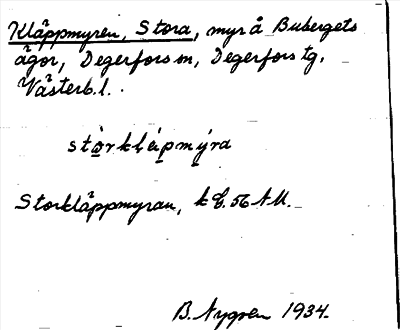 Kläppmyren, Stora, myr å Bubergets
ägor, Degerfors sn, Degerfors tg.
Västerb.l.
stòrklépmýra
Storkläppmyran, k E. 56 AU.
B. Nygren 1934.